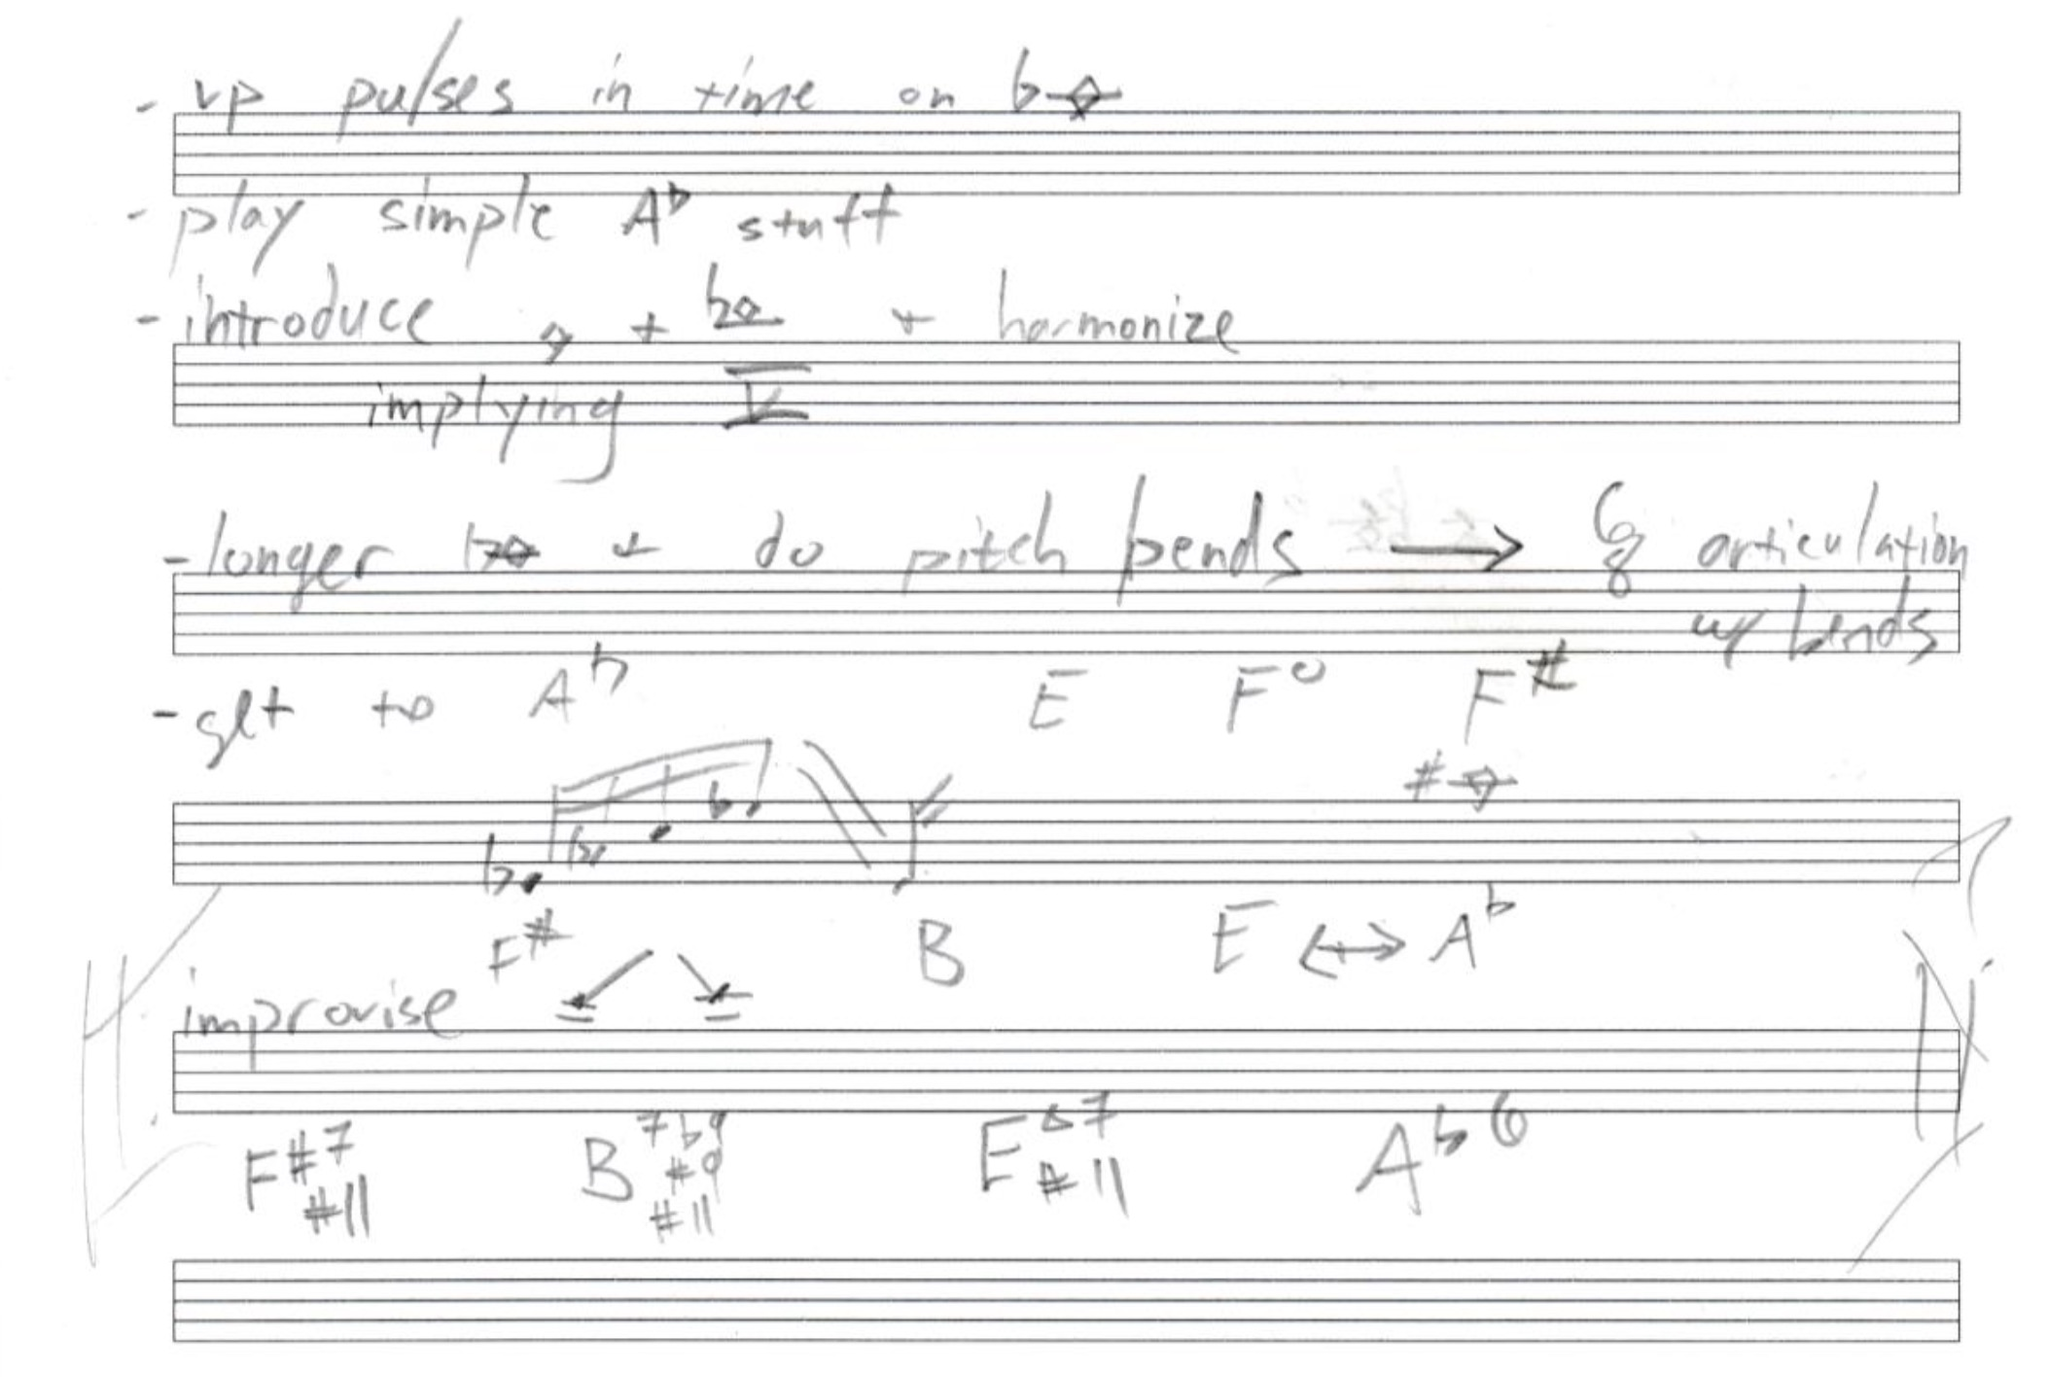 - vp pulses in time on b
- play simple Ab stuff
- introduce + b + harmonize
implying V
- longer b + do pitch bends → 6/8 articulation
w/ bends
- get to Ab E F° F#
F# B E ↔ Ab
improvise
F#7 #11 B7b9 #9 #11 EΔ7 #11 Ab6